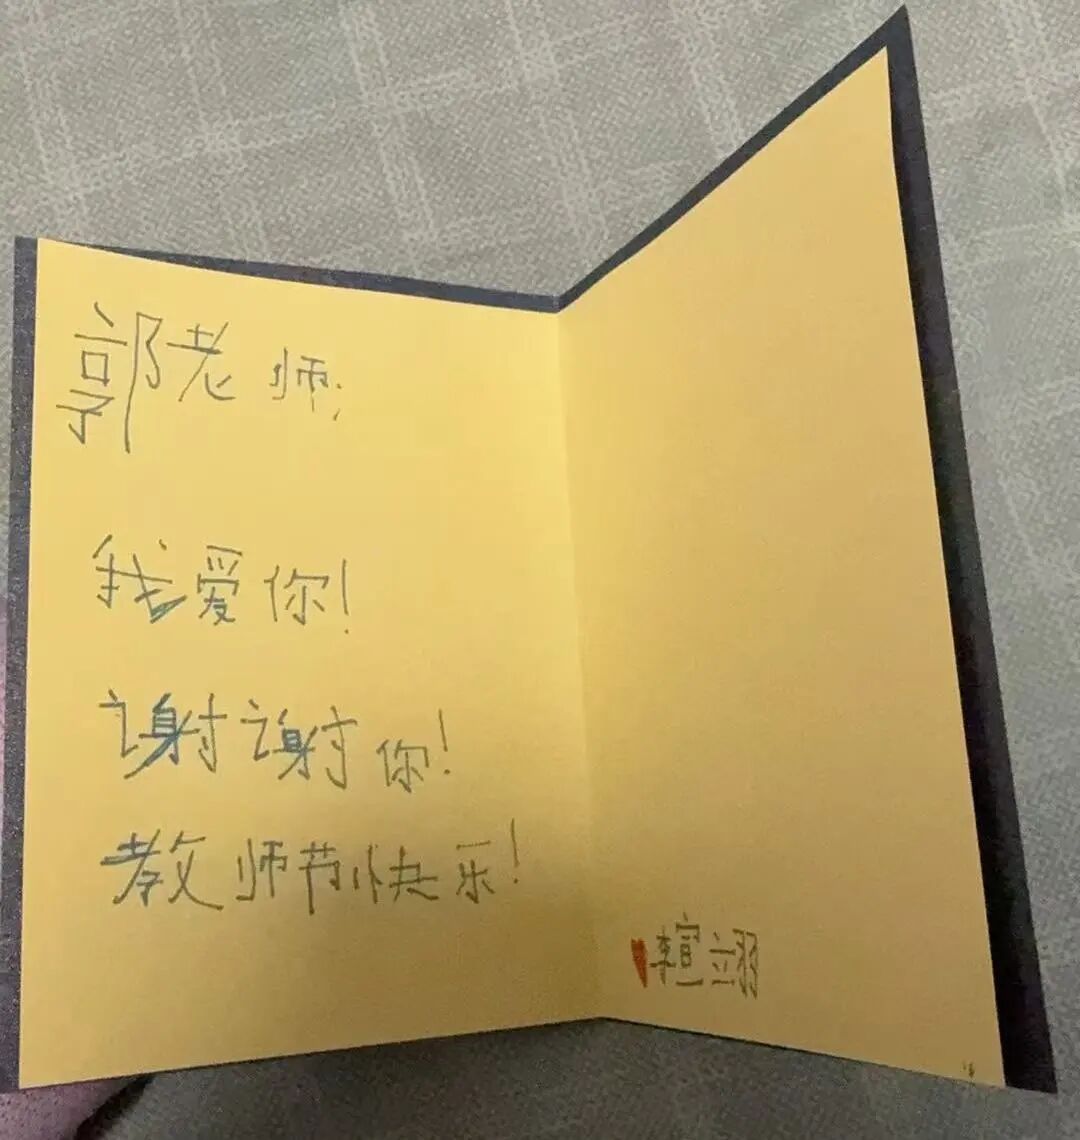 郭老师:
我爱你!
谢谢你!
教师节快乐!
翊